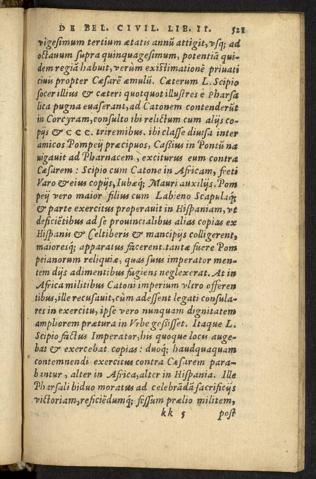 DE BEL. CIVIL. LIB. II. 521
vigesimum tertium ætatis annũ attigit, vsq; ad
octauum supra quinquagesimum, potentiã qui-
dem regiã habuit, verùm existimatione priuati
ciuis propter Cæsarẽ æmulũ. Cæterum L. Scipio
socer illius & cæteri quotquot illustres è Pharsa
lica pugna euaserant, ad Catonem contenderũt
in Corcyram, consulto ibi relictum cum alijs co-
pijs & CCC. triremibus. ibi classe diuisa inter
amicos Pompeij præcipuos, Cassius in Pontũ na
uigauit ad Pharnacem, exciturus eum contra
Cæsarem: Scipio cum Catone in Africam, freti
Varo & eius copijs, Iubæq; Mauri auxilijs. Pom
peij vero maior filius cum Labieno Scapulaq;
& parte exercitus properauit in Hispaniam, vt
deficiẽtibus ad se prouincialibus alias copias ex
Hispanis & Celtiberis & mancipijs colligerent,
maioresq; apparatus facerent. tantæ fuere Pom
peianorum reliquiæ, quas suus imperator men-
tem dijs adimentibus fugiens neglexerat. At in
Africa militibus Catoni imperium vltro offeren
tibus, ille recusauit, cùm adessent legati consula-
res in exercitu, ipse vero nunquam dignitatem
ampliorem prætura in Vrbe gessisset. Itaque L.
Scipio factus Imperator, his quoque locis auge-
bat & exercebat copias: duoq; haudquaquam
contemnendi exercitus contra Cæsarem para-
bantur, alter in Africa, alter in Hispania. Ille
Pharsali biduo moratus ad celebrãdã sacrificijs
victoriam, reficiẽdumq; fessum prælio militem,
kk 5 post